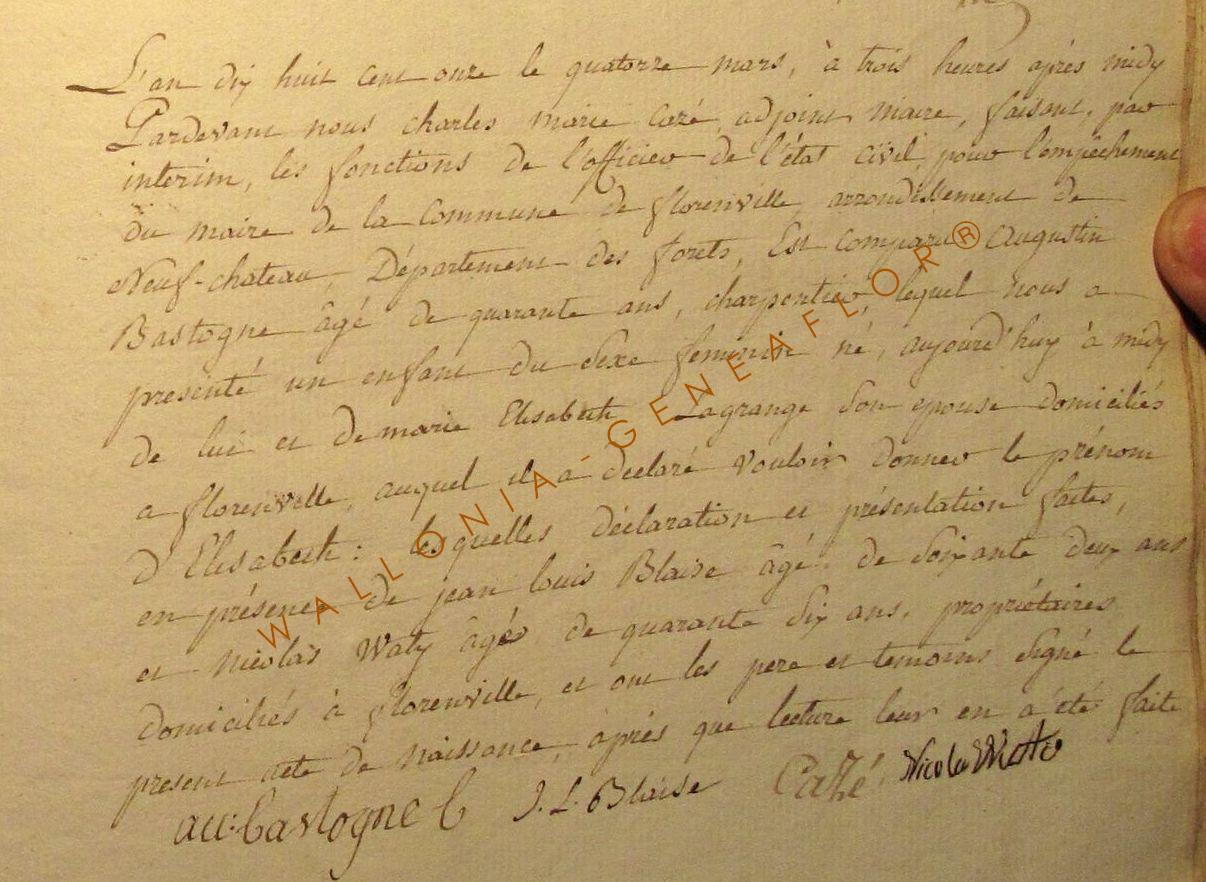 L'an dix huit cent onze le quatorze mars, à trois heures après midy
Pardevant nous charles marie Cazé adjoint maire, faisant, par
interim, les fonctions de l'officier de l'état civil, pour l'empêchement
du maire de la commune de florenville, arrondissement de
Neuf-chateau, Département des forets, Est comparu Augustin
Bastogne âgé de quarante ans, charpentier, lequel nous a
presenté un enfant du sexe feminin né, aujourd'huy à midy
de lui et de marie Elisabeth Lagrange son epouse domiciliés
a florenville, auquel il a déclaré vouloir donner le prénom
d'Elisabeth: les quelles déclaration et présentation faites,
en présence de jean louis Blaise âgé de soixante deux ans
et nicolas Waty âgé de quarante six ans, propriétaires
domiciliés à florenville, et ont les pere et temoins signé le
present acte de naissance, après que lecture leur en a été faite
bastogne J. L. Blaise Cazé Nicolas
WALLONIA-GENEAFLOR®